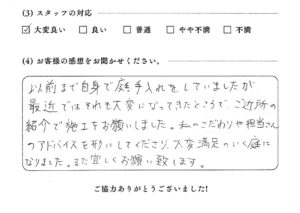 (3) スタッフの対応
☑ 大変良い □ 良い □ 普通 □ やや不満 □ 不満
(4) お客様の感想をお聞かせください。
以前まで自身で庭手入れをしていましたが
最近ではそれも大変になってきたところで、ご近所の
紹介で施工をお願いしました。私のこだわりや担当さん
のアドバイスを形にしてくださり、大変満足のいく庭に
なりました。また宜しくお願い致します。
ご協力ありがとうございました!